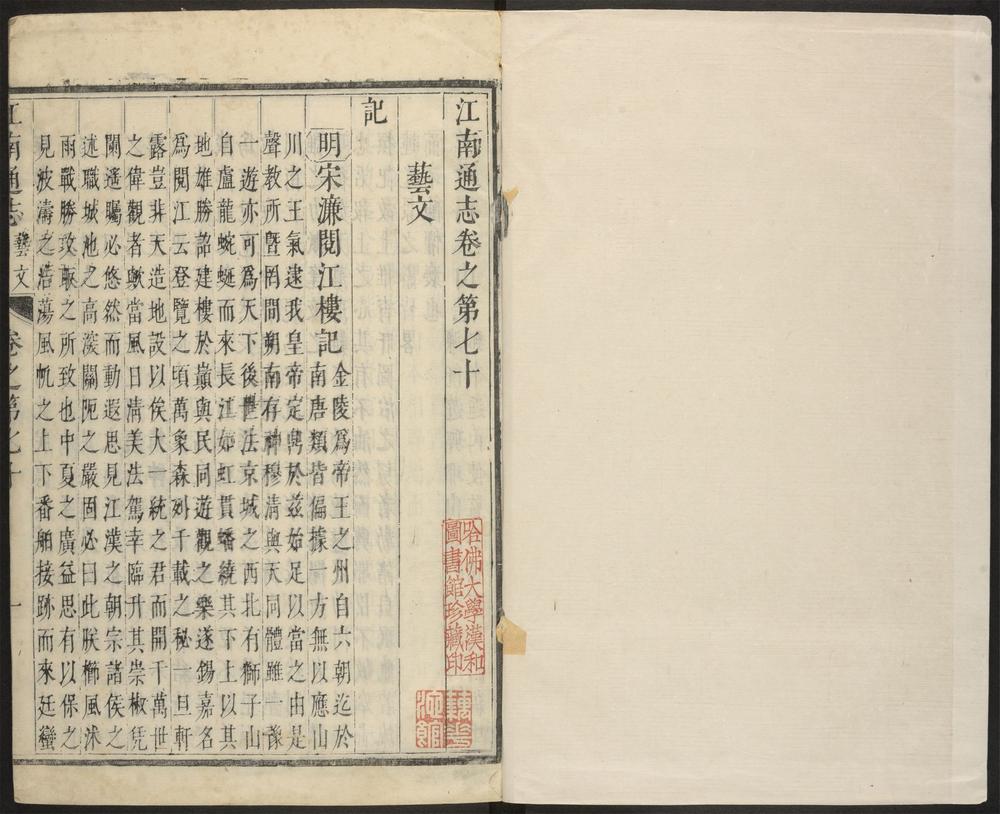 江南通志卷之第七十
藝文
記
明宋濂閱江樓記
金陵爲帝王之州自六朝迄於
南唐類皆偏據一方無以應山
川之王氣逮我皇帝定鼎於茲始足以當之由是
聲教所曁罔間朔南存神穆清與天同體雖一豫
一遊亦可爲天下後世法京城之西北有獅子山
自盧龍蜿蜒而來長江如虹貫蟠繞其下上以其
地雄勝詔建樓於巔與民同遊觀之樂遂錫嘉名
爲閱江云登覽之頃萬象森列千載之秘一旦軒
露豈非天造地設以俟大一統之君而開千萬世
之偉觀者歟當風日清美法駕幸臨升其崇椒凭
闌遥矚必悠然而動遐思見江漢之朝宗諸侯之
述職城池之高深關阨之嚴固必曰此朕櫛風沐
雨戰勝攻取之所致也中夏之廣益思有以保之
見波濤之浩蕩風帆之上下番舶接跡而來廷蠻
江南通志
藝文
卷之第七十
一
哈佛大學漢和
圖書館珍藏印